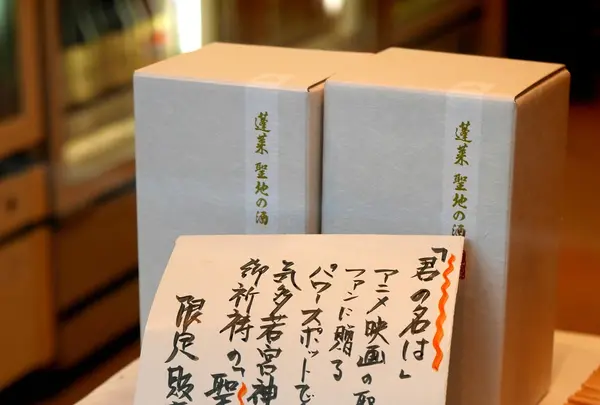 蓬莱 聖地の酒
蓬莱 聖地の酒
「君の名は」
アニメ映画の聖
ファンに贈る
パワースポットで
気多若宮神
御祈祷の「聖
限定販